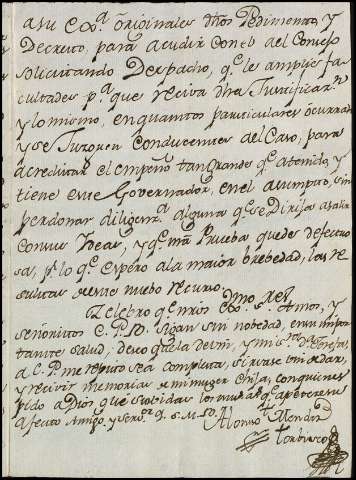 a su Exª originales dhos Pedimento, y
Decreto, para acudir con el al Consejo
solicitando Despacho, q.e le amplie fa
cultades p.a que reciva dha Justificaz.n
y lo mismo, en quantos particulares ocurran
y se Juzguen conducentes al Caso, para
acreditar el empeño tan Grande q.e a tenido, y
tiene este Governador, en el asumpto, sin
perdonar diligenz.a alguna q.e se Dirija a salir
con sus Ideas, y q.e mi Prueba quede defectuo
sa, p.r lo q.e espero a la maior brebedad, las re
sultas de este nuebo recurso.
Zelebro q.e mis Amos, y
señoritos C. P. B. sigan sin nobedad, en su impor
tante salud, deseo q.e la de Vm, y mi s.ra D.a Teresa,
a C. P. me reputo sea completa, sirvase Vm de dar,
y recivir memorias de mi muger e hija, con quienes
pido a Dios que sus vidas los m.s a.s q.e apetece su
afecto Amigo, y serv.or q. s. M. B.
Alonso Mendez